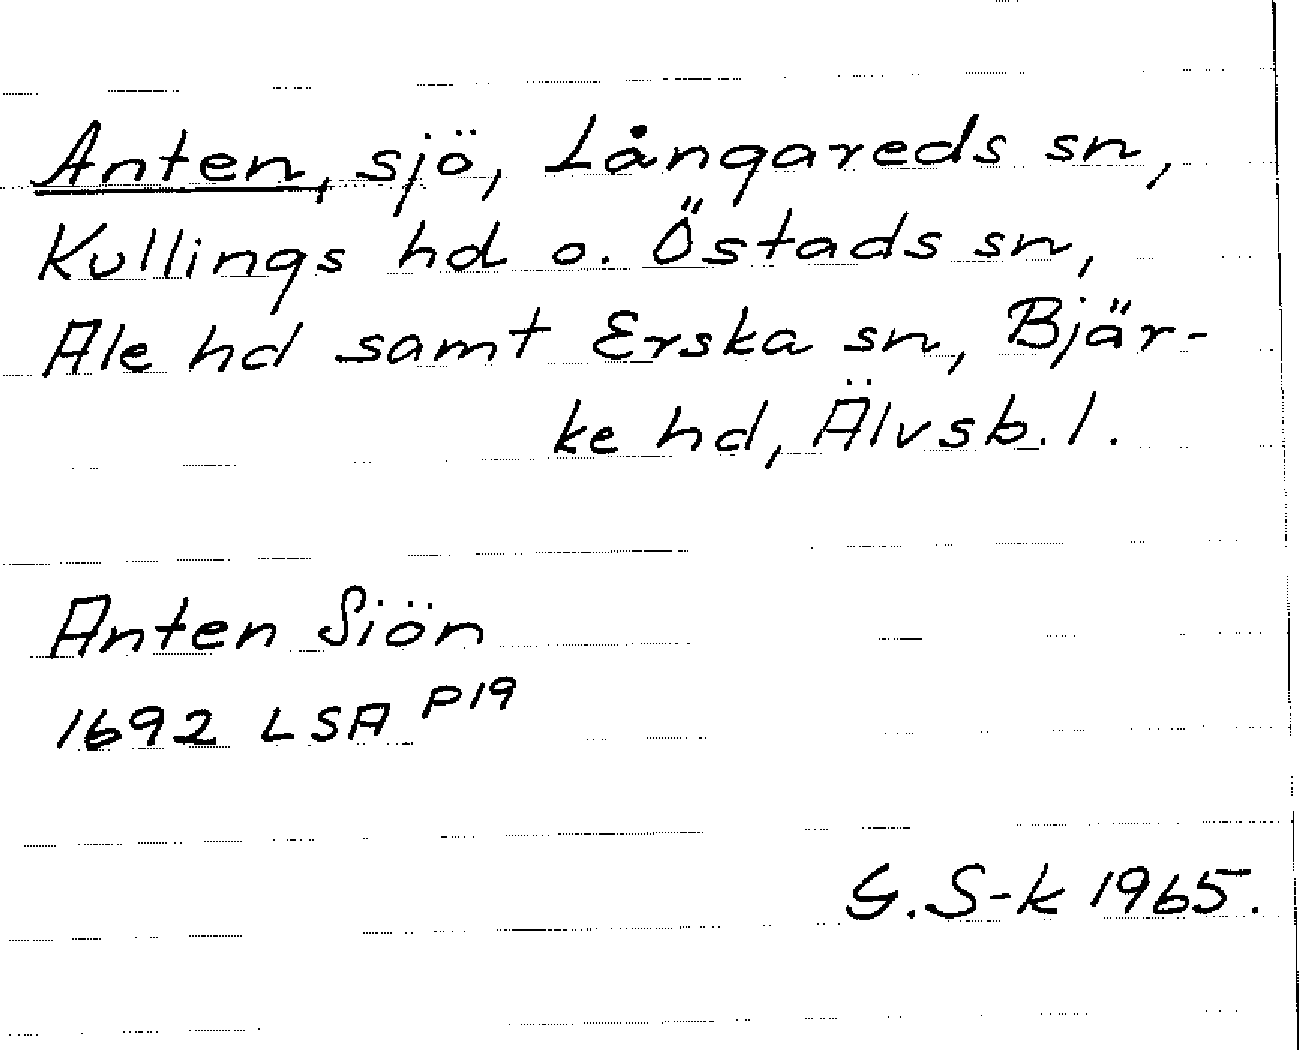 Anten, sjö, Långareds sn,
Kullings hd o. Östads sn,
Ale hd samt Erska sn, Bjär-
ke hd, Älvsb. l.
Anten Siön
1692 LSA P19
G. S-k 1965.